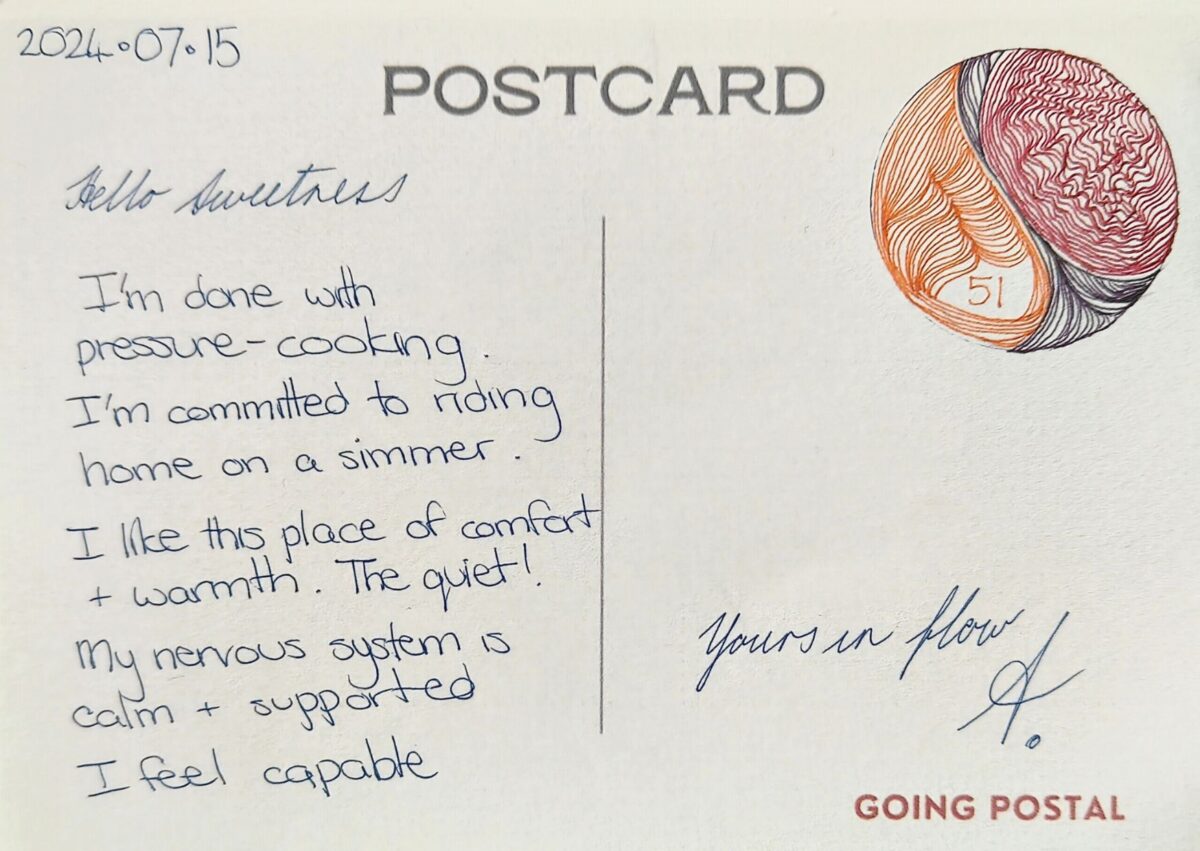 2024.07.15
POSTCARD
51
Hello Sweetness
I'm done with
pressure-cooking.
I'm committed to riding
home on a simmer.
I like this place of comfort
+ warmth. The quiet!
My nervous system is
calm + supported
I feel capable
Yours in flow
A.
GOING POSTAL